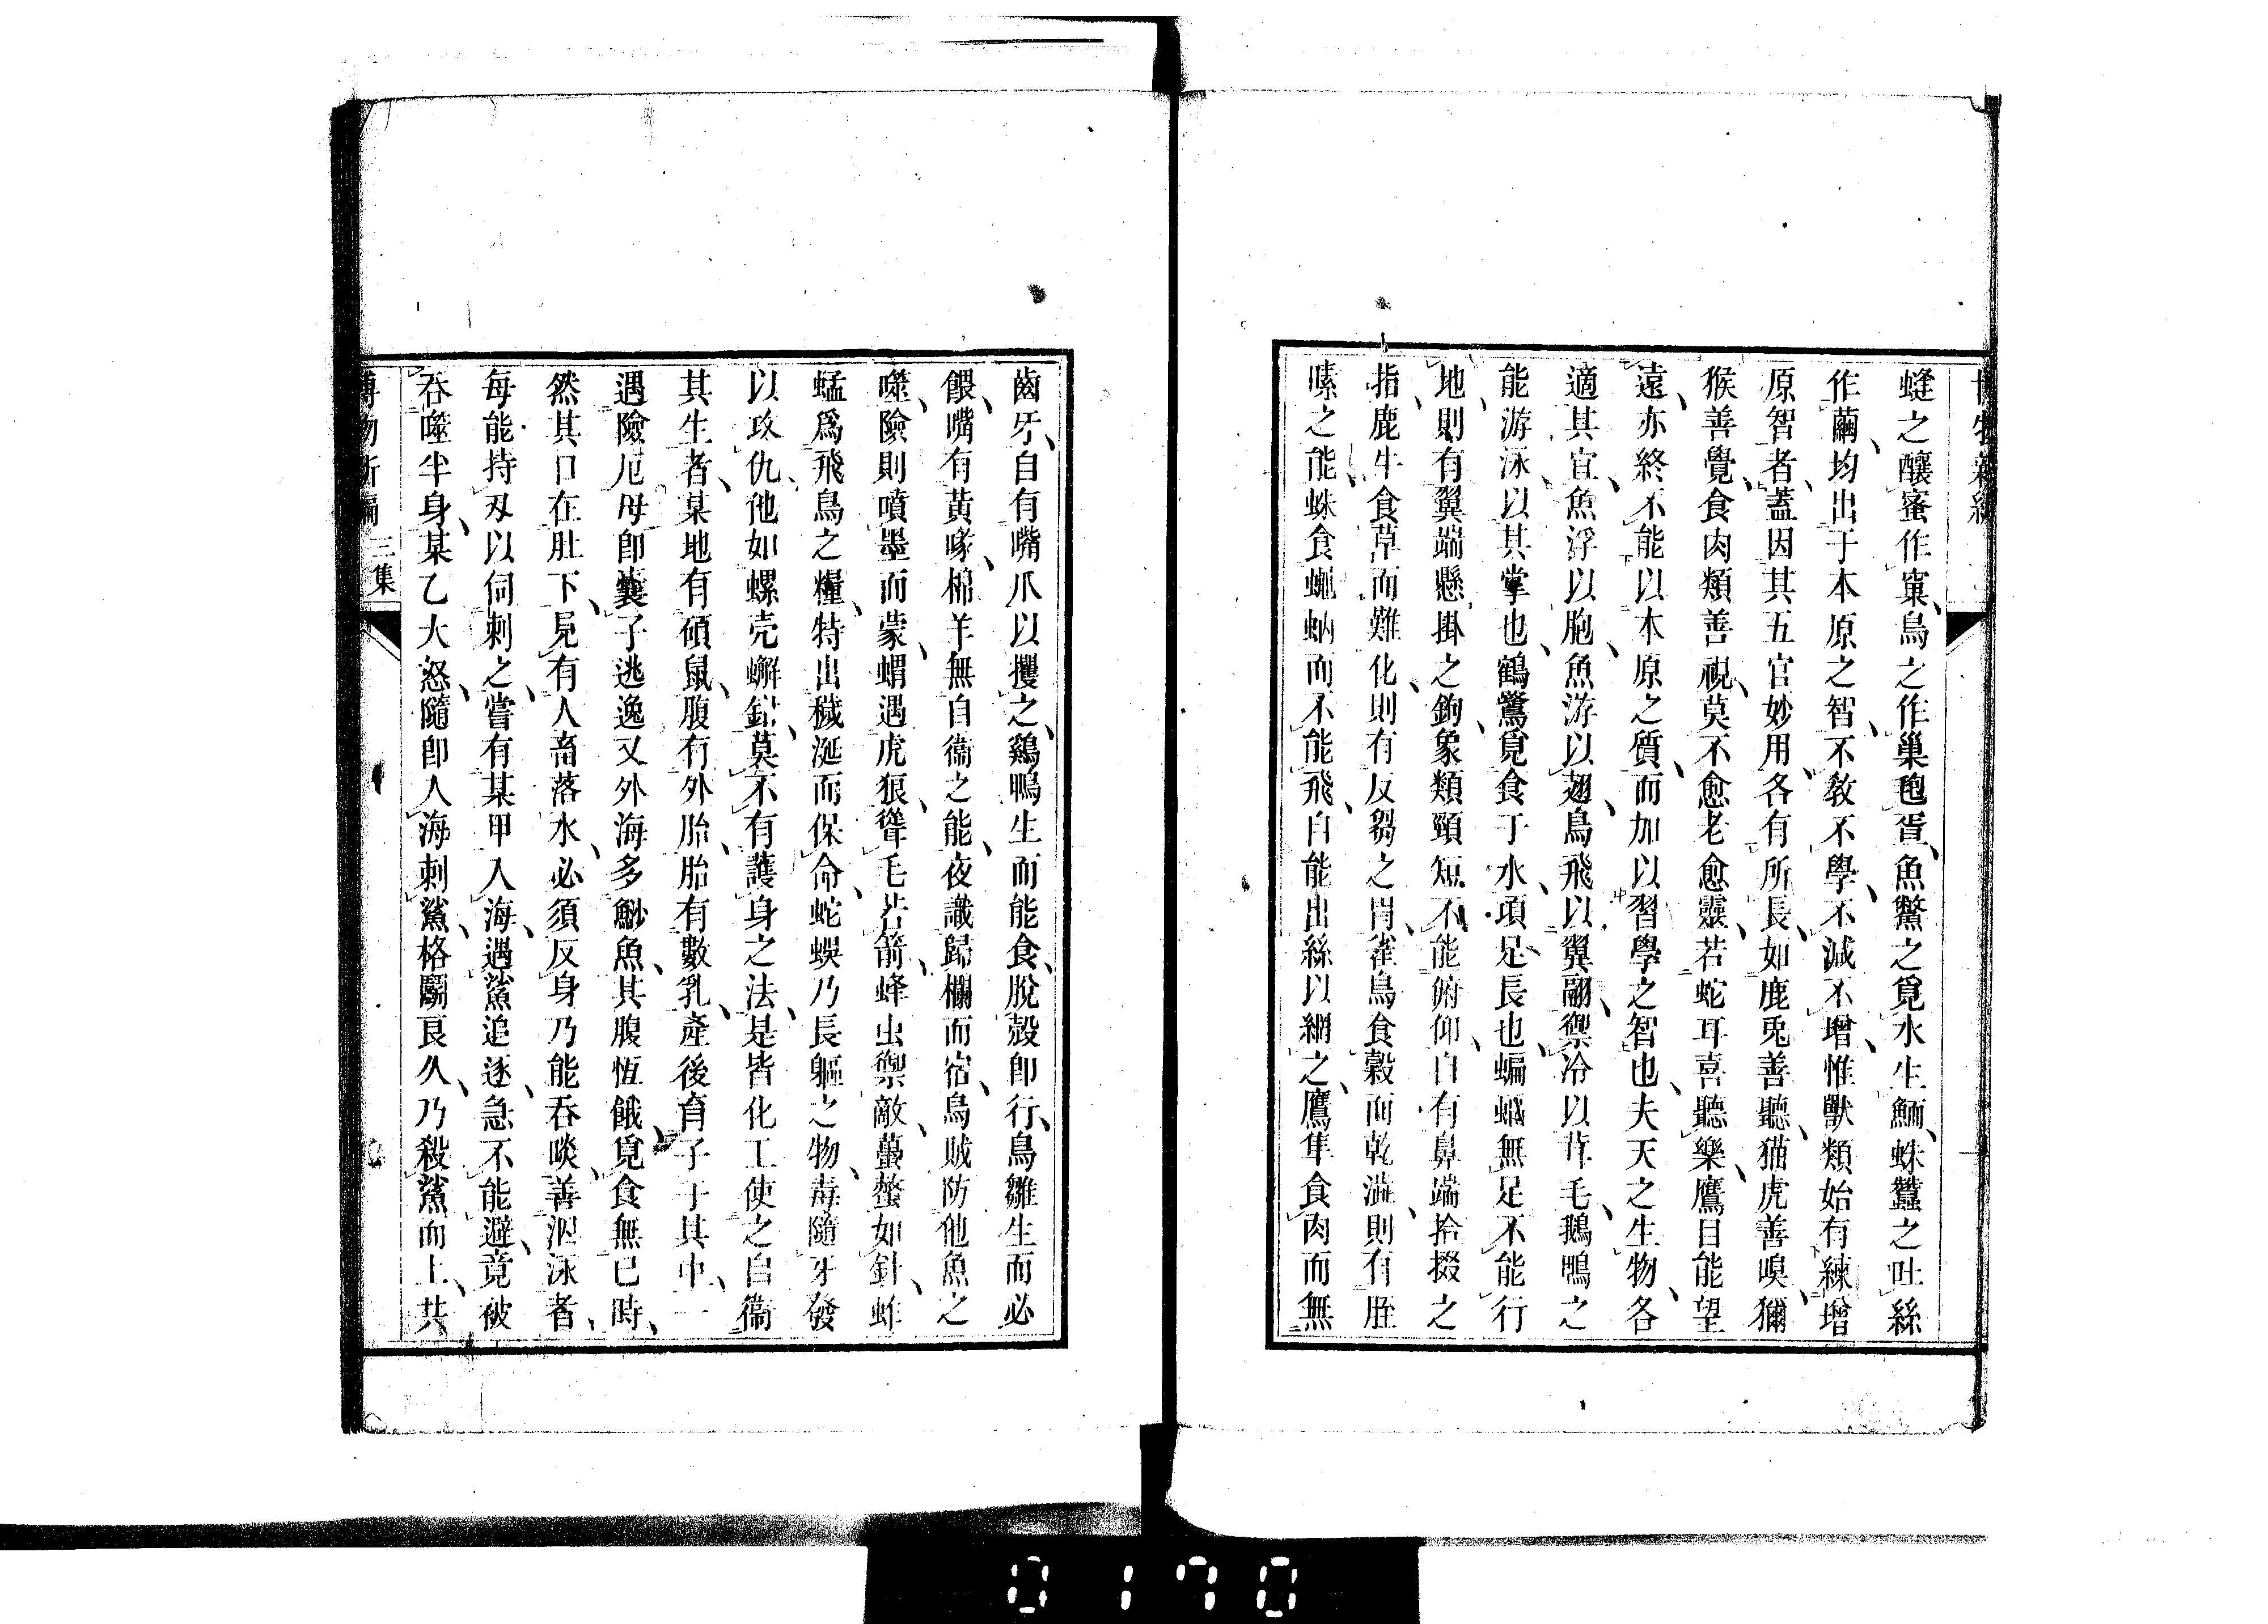 蜂之釀蜜作窠、鳥之作巢孢疍、魚鱉之覓水生鮞、蛛蠶之吐絲
作繭、均出于本原之智、不敎不學、不減不增、惟獸類始有練增
原智者、蓋因其五官妙用、各有所長、如鹿兎善聽、猫虎善嗅、獼
猴善覺、食肉類善視、莫不愈老愈靈、若蛇耳喜聽樂、鷹目能望
遠、亦終不能以本原之質、而加以習學之智也、夫天之生物、各
適其宜、魚浮以胞、魚游以翅、鳥飛以翼翮、禦冷以茸毛、鵝鴨之
能游泳、以其掌也、鶴鷺覓食于水、項足長也、蝙蝠無足不能行
地、則有翼端懸掛之鉤、象類頸短、不能俯仰、自有鼻端拾掇之
指、鹿牛食草而難化、則有反芻之胃、雀鳥食穀而乾澁、則有胵
嗉之能、蛛食蠅蚋而不能飛、自能出絲以網之、鷹隼食肉而無
齒牙、自有嘴爪以攫之、鷄鴨生而能食、脫殼卽行、鳥雛生而必
餵、嘴有黃喙、棉羊無自衞之能、夜識歸欄而宿、烏賊防他魚之
噬、險則噴墨而蒙、蝟遇虎狼、聳毛若箭、蜂虫禦敵、蠆螫如針、蚱
蜢爲飛鳥之糧、特出穢涎而保命、蛇蜈乃長軀之物、毒隨牙發
以攻仇、他如螺壳蠏鉗、莫不有護身之法、是皆化工使之自衞
其生者、某地有碩鼠、腹有外胎、胎有數乳、產後育子于其中、一
遇險厄、母卽囊子逃逸、又外海多魦魚、其腹恆餓、覓食無已時、
然其口在肚下、見有人畜落水、必須反身乃能吞啖、善泅泳者、
每能持刄以伺刺之、嘗有某甲入海、遇鯊追逐、急不能避、竟被
吞噬半身、某乙大怒、隨卽入海刺鯊、格鬭良久、乃殺鯊而上、共
三集
0170